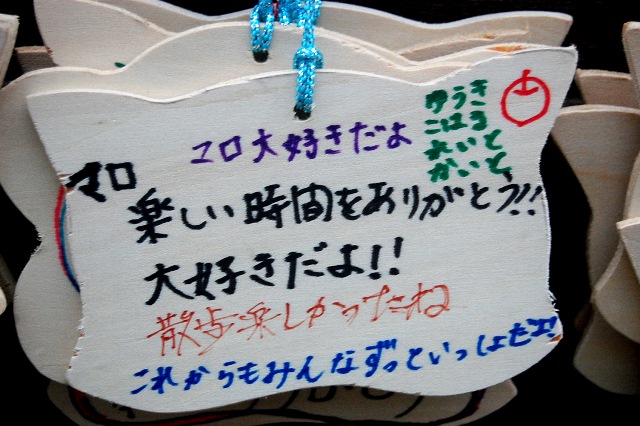 ゆうき
こはる
れいと
かいと
マロ大好きだよ
マロ
楽しい時間をありがとう!!
大好きだよ!!
散歩楽しかったね
これからもみんなずっといっしょだよ!